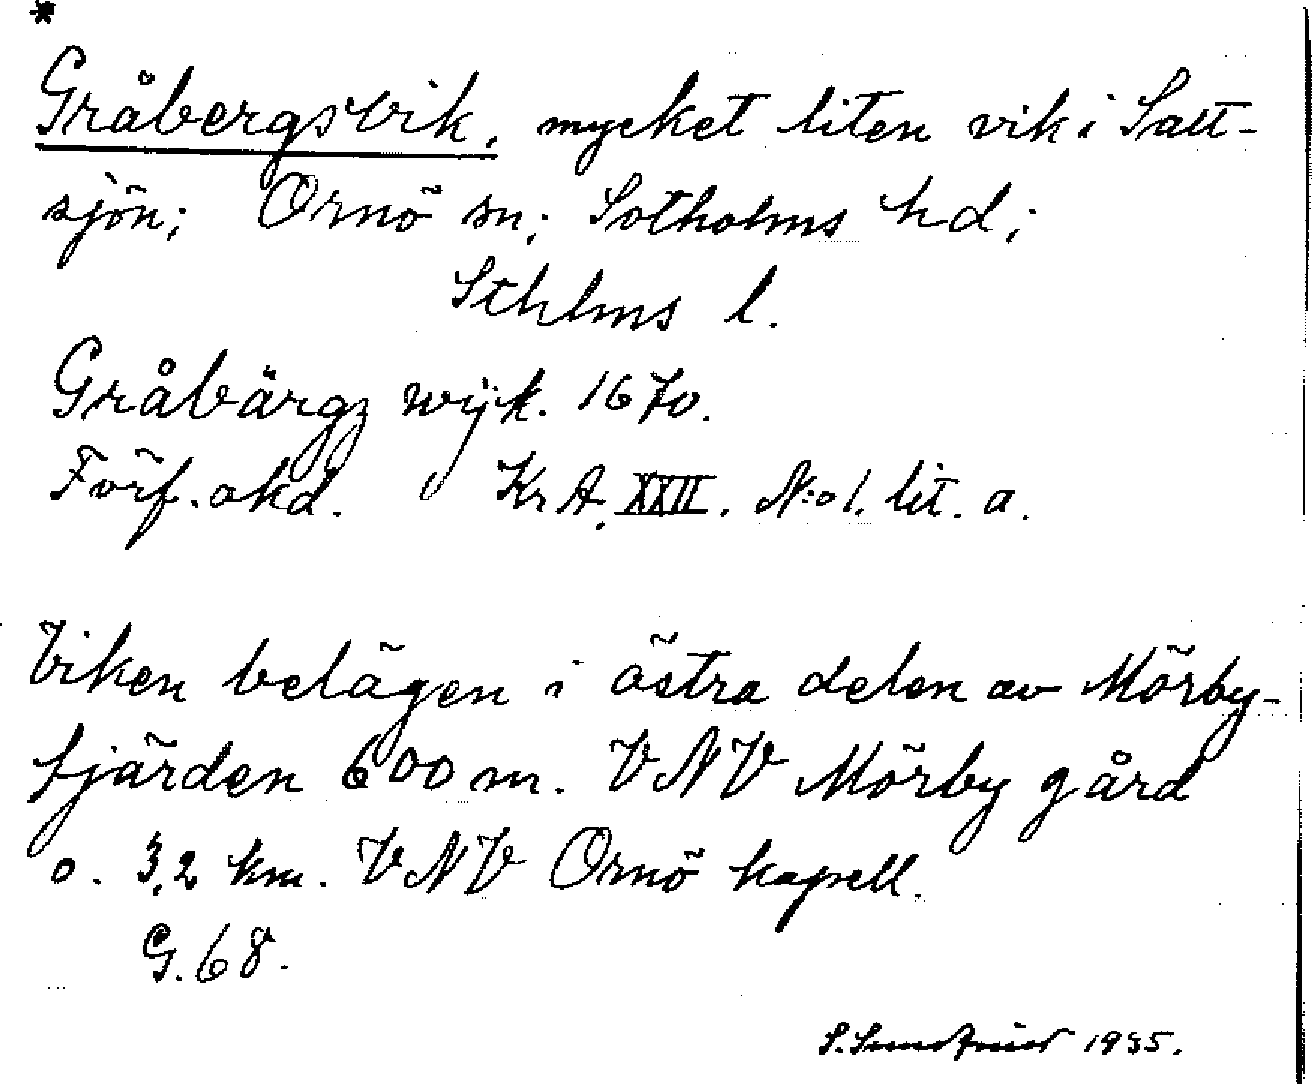 *
Gråbergsvik, mycket liten vik i Salt-
sjön; Ornö sn; Sotholms hd;
Sthlms l.
Gråbärgz wijk. 1670.
Förf. okd. KrA. XXII. N:o 1. lit. a.
Viken belägen i östra delen av Mörby-
fjärden 600 m. VNV Mörby gård
o. 3,2 km. VNV Ornö kapell.
G. 68.
S. 1935.